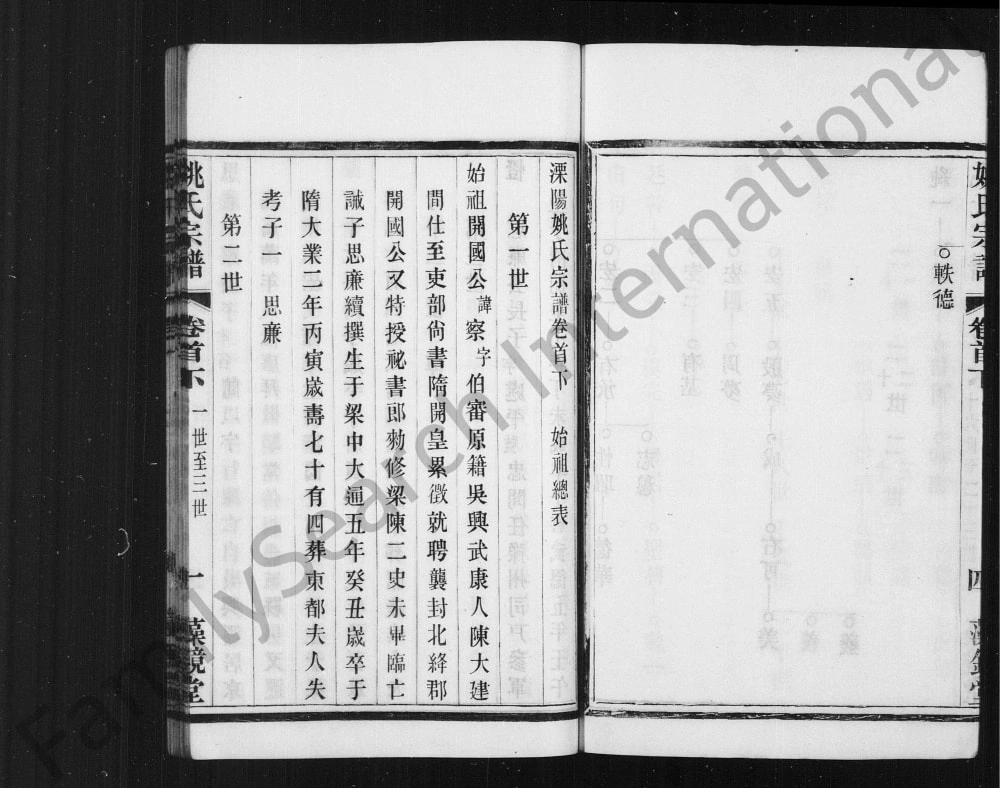 軼德
溧陽姚氏宗譜卷首下 始祖總表
第一世
始祖開國公諱察字伯審原籍吳興武康人陳大建
間仕至吏部尚書隋開皇累徵就聘襲封北絳郡
開國公又特授祕書郎勅修梁陳二史未畢臨亡
誡子思廉續撰生于梁中大通五年癸丑歲卒于
隋大業二年丙寅歲壽七十有四葬東都夫人失
考子一 思廉
第二世
姚氏宗譜 卷首下 一世至三世 一 藻鏡堂
FamilySearch International